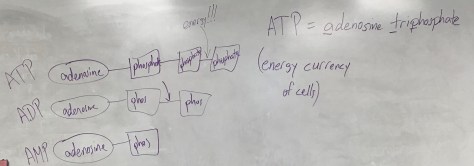 energy!!!
ATP = adenosine triphosphate
ATP adenosine phosphate phosphate phosphate
(energy currency
of cells)
ADP adenosine phos phos
AMP adenosine phos